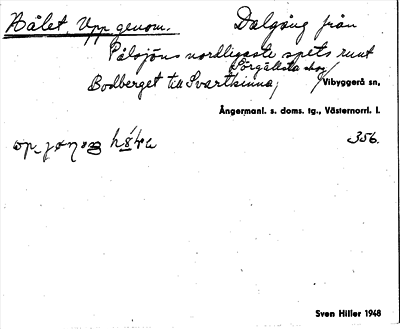 Hålet, Upp genom. Dalgång från
Pålsjöns nordligaste spets runt
Bodberget till Svarttinna,
Vibyggerå sn,
Ångermanl. s. doms. tg., Västernorrl. l.
356.
Sven Hiller 1948